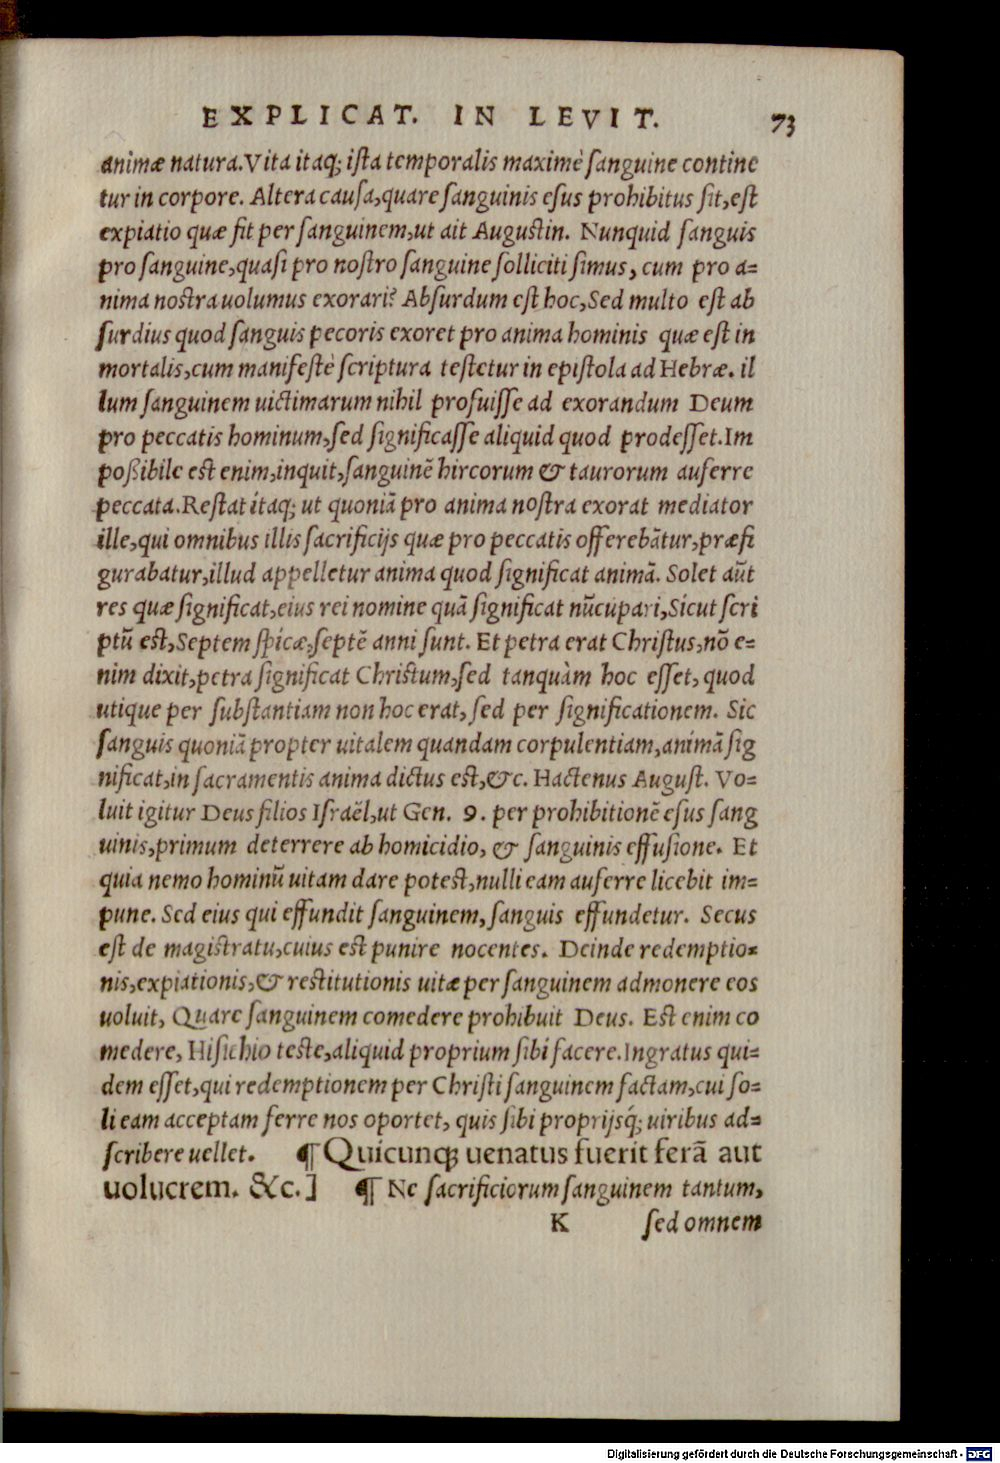 EXPLICAT. IN LEVIT. 73
animæ natura. Vita itaq; ista temporalis maximè sanguine contine
tur in corpore. Altera causa, quare sanguinis esus prohibitus sit, est
expiatio quæ fit per sanguinem, ut ait Augustin. Nunquid sanguis
pro sanguine, quasi pro nostro sanguine solliciti simus, cum pro a=
nima nostra uolumus exorari? Absurdum est hoc, Sed multo est ab
surdius quod sanguis pecoris exoret pro anima hominis quæ est in
mortalis, cum manifestè scriptura testetur in epistola ad Hebræ. il
lum sanguinem uictimarum nihil profuisse ad exorandum Deum
pro peccatis hominum, sed significasse aliquid quod prodesset. Im
possibile est enim, inquit, sanguinē hircorum & taurorum auferre
peccata. Restat itaq; ut quoniā pro anima nostra exorat mediator
ille, qui omnibus illis sacrificijs quæ pro peccatis offerebātur, præfi
gurabatur, illud appelletur anima quod significat animā. Solet aūt
res quæ significat, eius rei nomine quā significat nūcupari, Sicut scri
ptū est, Septem spicæ, septē anni sunt. Et petra erat Christus, nō e=
nim dixit, petra significat Christum, sed tanquàm hoc esset, quod
utique per substantiam non hoc erat, sed per significationem. Sic
sanguis quoniā propter uitalem quandam corpulentiam, animā sig
nificat, in sacramentis anima dictus est, &c. Hactenus August. Vo=
luit igitur Deus filios Israēl, ut Gen. 9. per prohibitionē esus sang
uinis, primum deterrere ab homicidio, & sanguinis effusione. Et
quia nemo hominū uitam dare potest, nulli eam auferre licebit im=
pune. Sed eius qui effundit sanguinem, sanguis effundetur. Secus
est de magistratu, cuius est punire nocentes. Deinde redemptio=
nis, expiationis, & restitutionis uitæ per sanguinem admonere eos
uoluit, Quare sanguinem comedere prohibuit Deus. Est enim co
medere, Hisichio teste, aliquid proprium sibi facere. Ingratus qui=
dem esset, qui redemptionem per Christi sanguinem factam, cui so=
li eam acceptam ferre nos oportet, quis sibi proprijsq; uiribus ad=
scribere uellet. ¶ Quicunq; uenatus fuerit ferā aut
uolucrem. &c.] ¶ Ne sacrificiorum sanguinem tantum,
K sed omnem
Digitalisierung gefördert durch die Deutsche Forschungsgemeinschaft - DFG